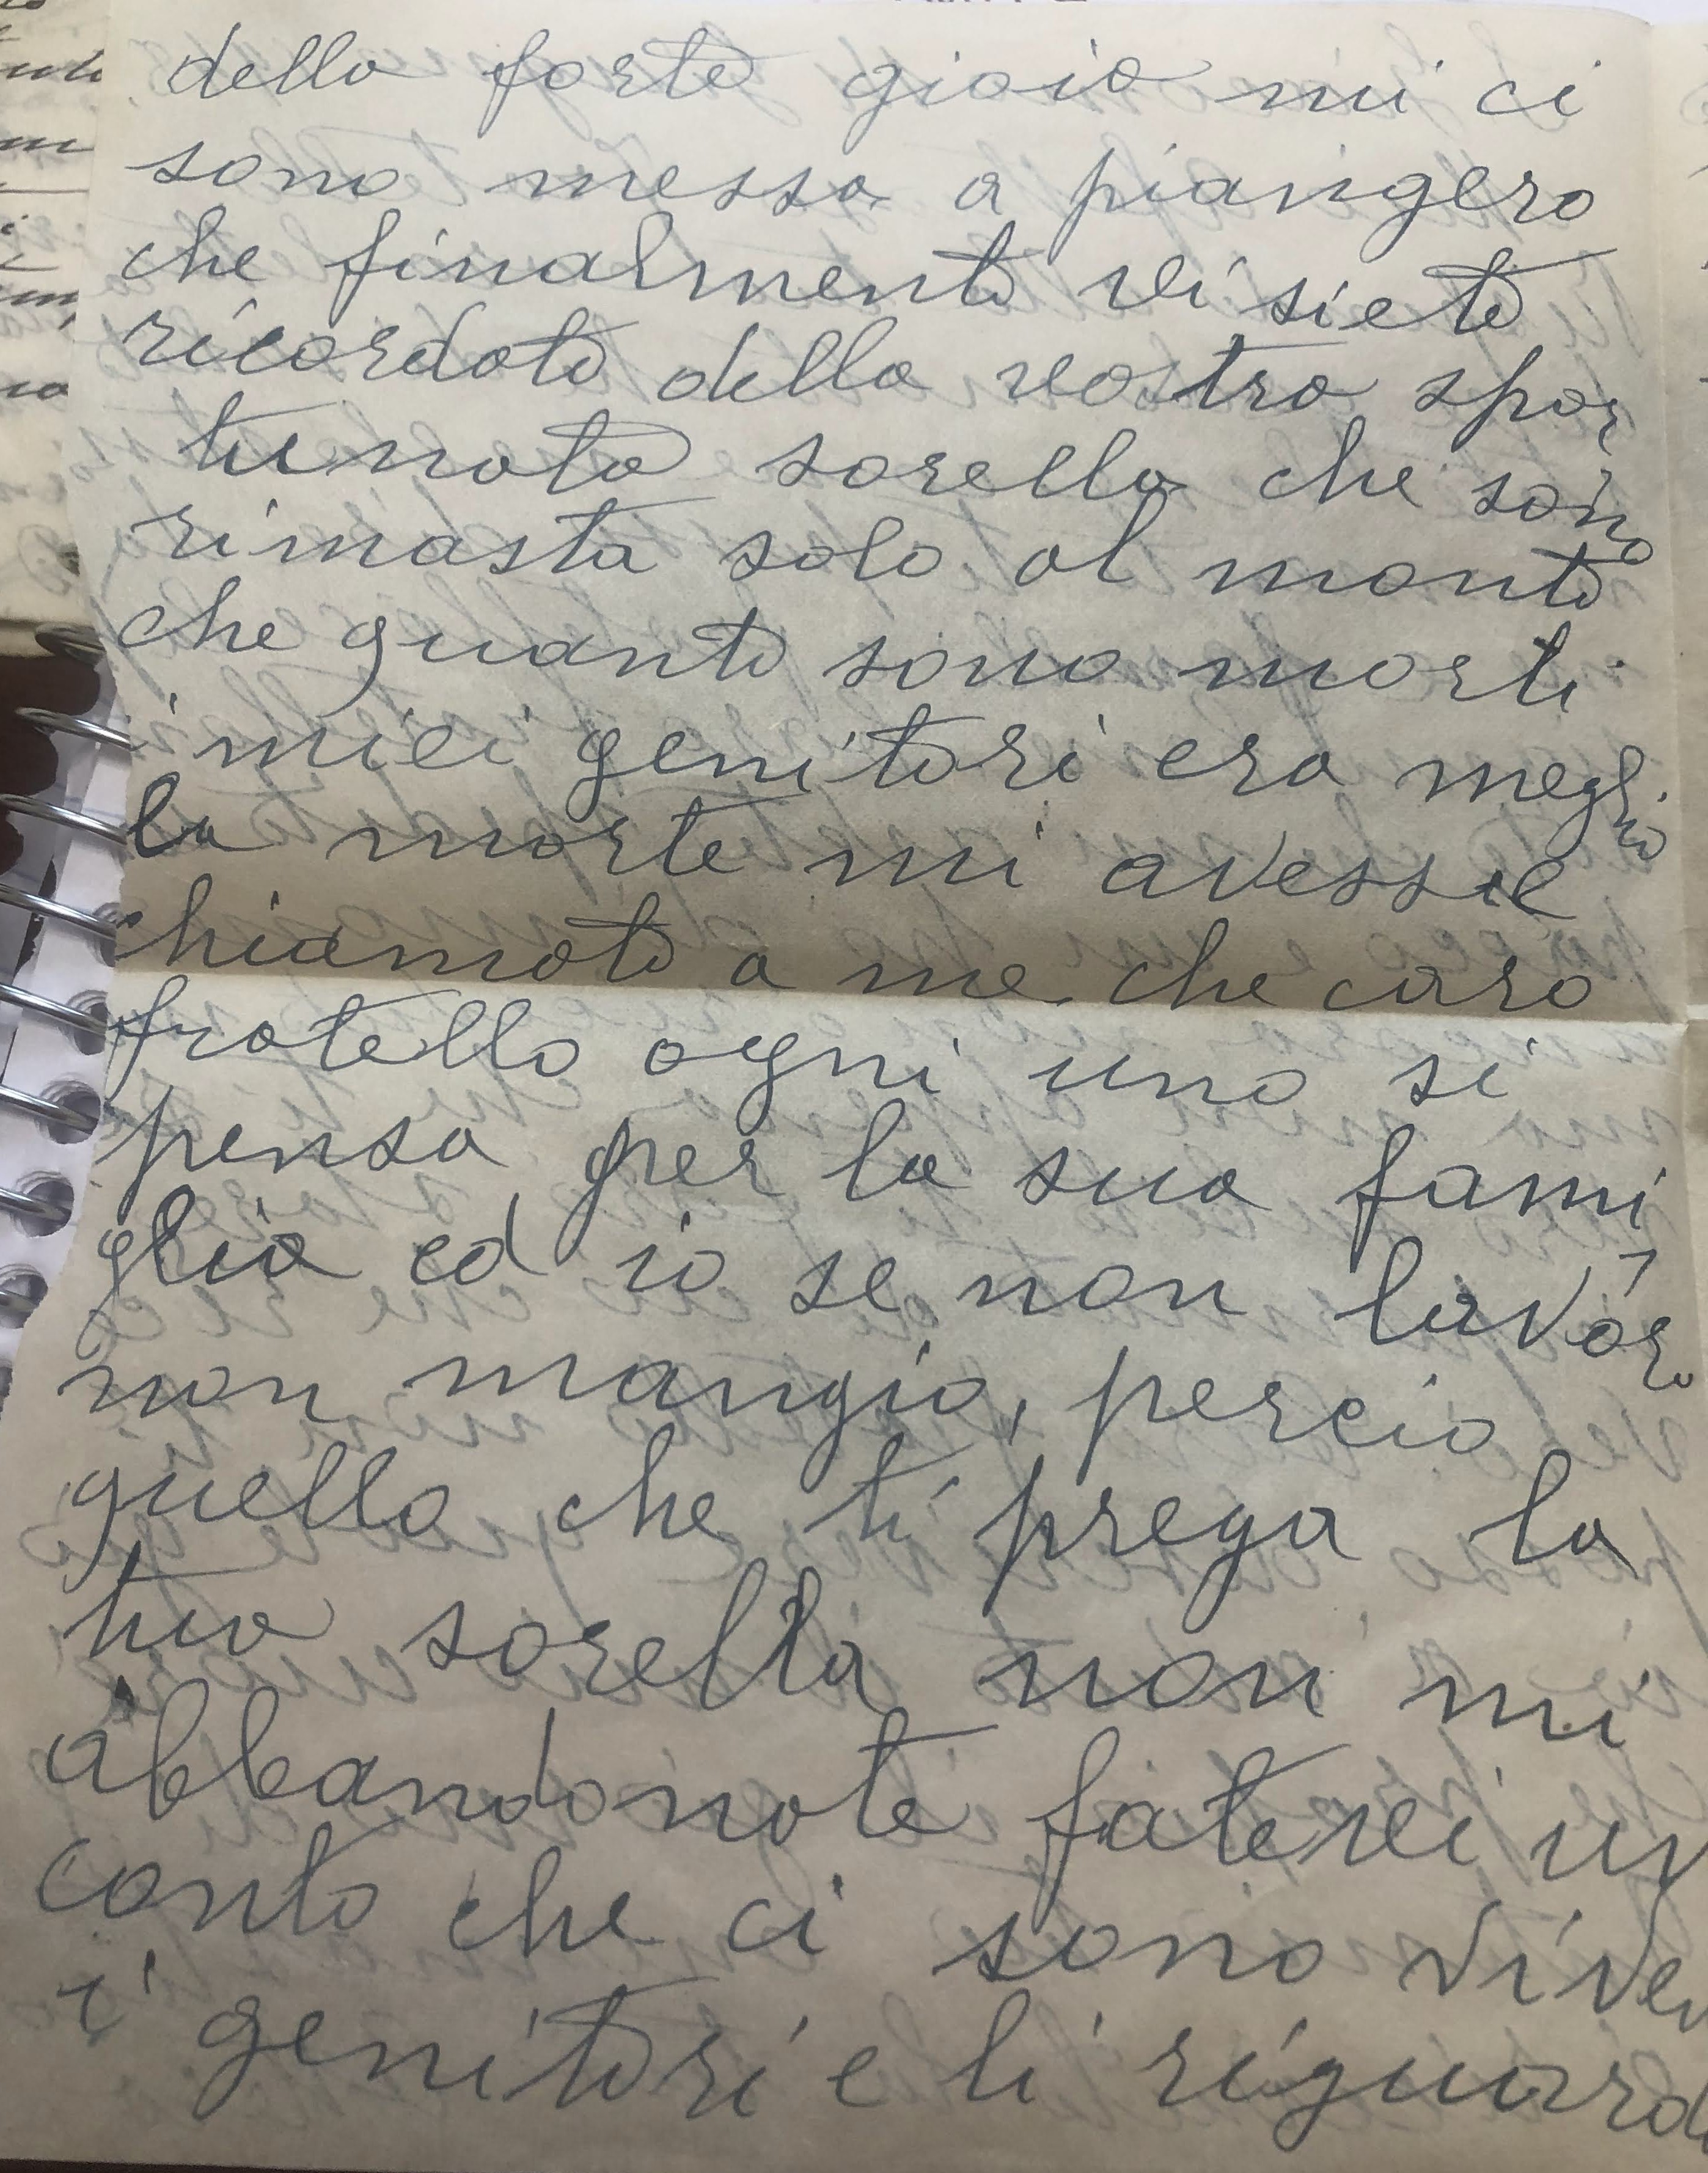 della forte gioia mi ci
sono messa a piangero
che finalmento vi sieto
ricordato della vostra spor
tunata sorella che sono
rimasta sola al monto
che quanto sono morti
i miei genitori era meglio
la morte mi avesse
chiamato a me che caro
fratello ogni uno si
pensa per la sua fami
glia ed io se non lavoro
non mangio, percio
quello che ti prega la
tua sorella non mi
abbandonate fatevi un
conto che ci sono viven
i genitori e li riguard